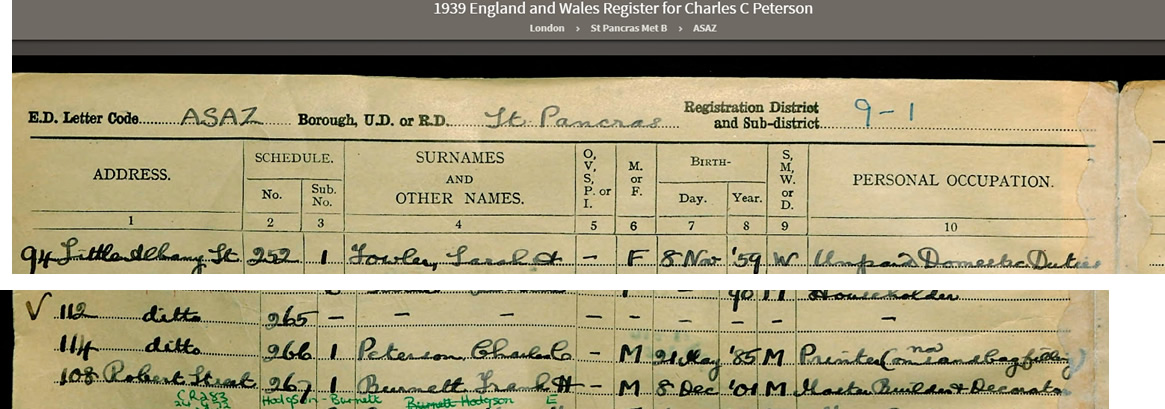 1939 England and Wales Register for Charles C Peterson
London > St Pancras Met B > ASAZ
E.D. Letter Code ASAZ Borough, U.D. or R.D. St Pancras Registration District and Sub-district 9-1
ADDRESS. SCHEDULE. No. Sub. No. SURNAMES AND OTHER NAMES. O, V, S, P. or I. M. or F. BIRTH- Day. Year. S, M, W. or D. PERSONAL OCCUPATION.
1 2 3 4 5 6 7 8 9 10
94 Little Albany St 252 1 Fowler, Sarah A – F 8 Nov '59 W Unpaid Domestic Duties
'90 M Householder
V 112 ditto 265 – – – – – – – –
114 ditto 266 1 Peterson, Charles C – M 21 May '85 M Printer (now on sandbag filling)
108 Robert Street 267 1 Burnett Frank H – M 8 Dec '01 M Master Builder & Decorator
CR283 Hodgson - Burnett Burnett Hodgson E